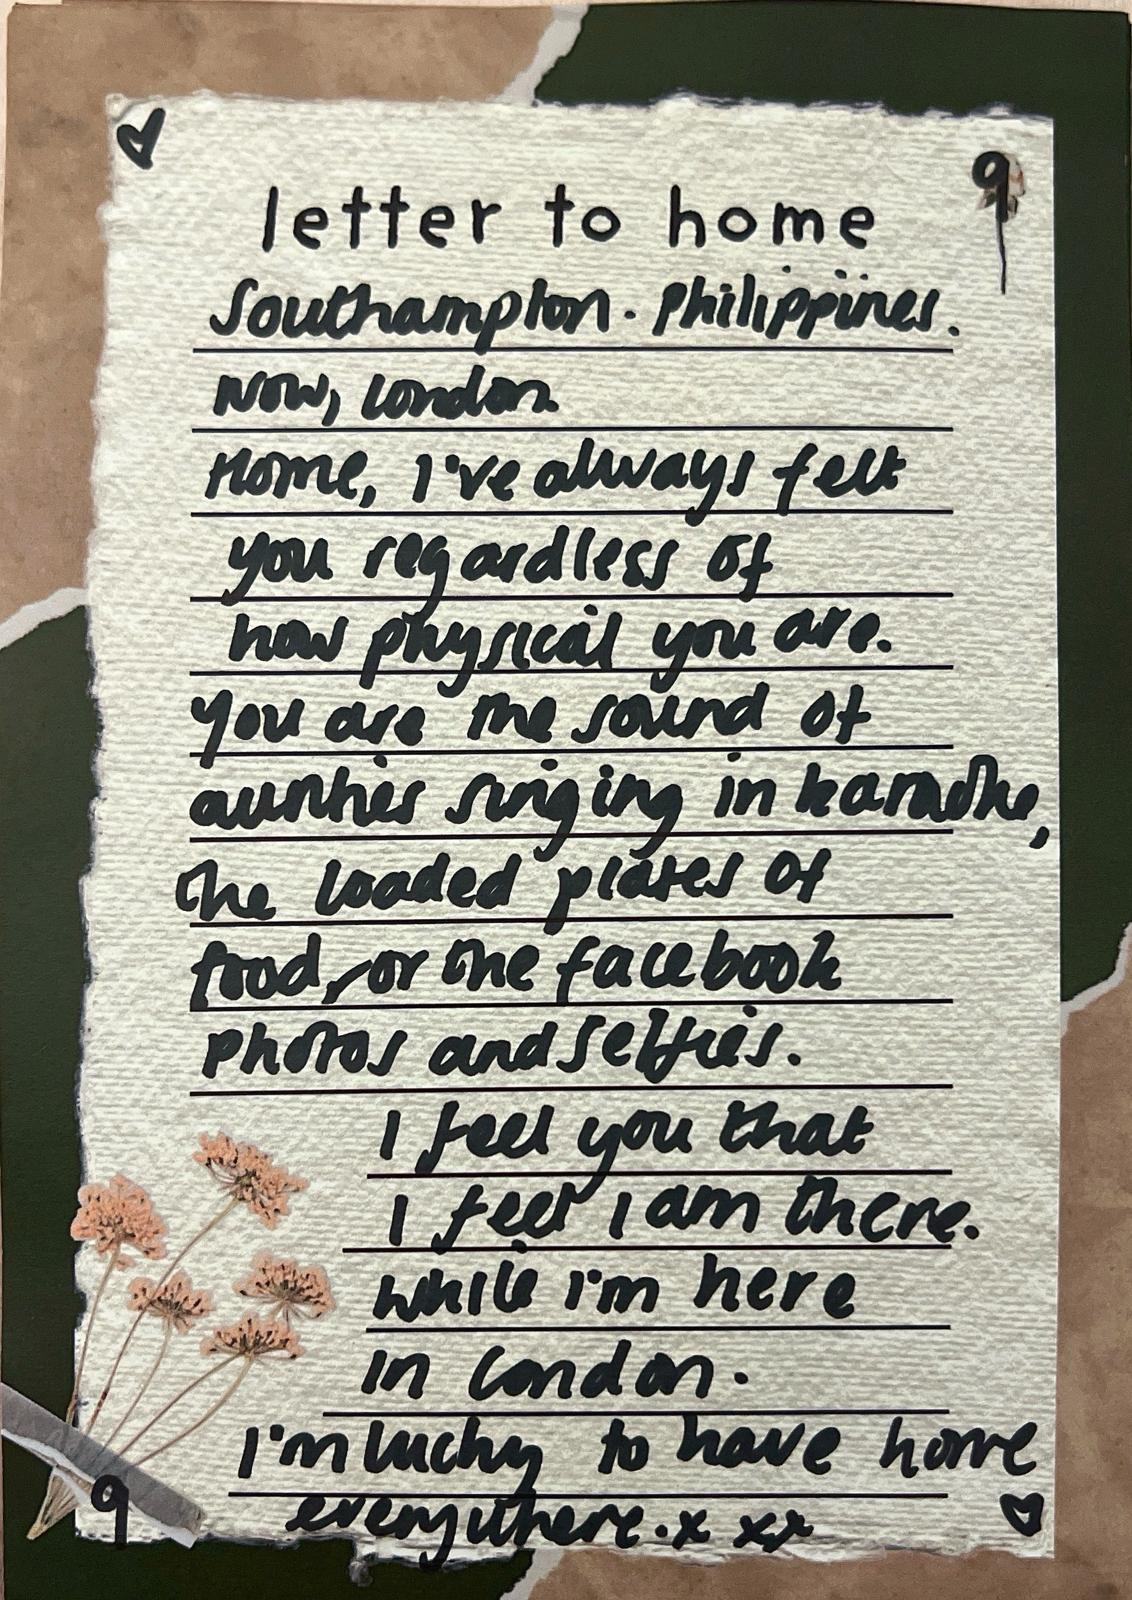 letter to home
Southampton. Philippines.
Now, London.
Home, I've always felt
you regardless of
how physical you are.
You are the sound of
aunties singing in karaoke,
the loaded plates of
food, or the facebook
photos and selfies.
I feel you that
I feel I am there.
while I'm here
in London.
I'm lucky to have home
everywhere. x xx